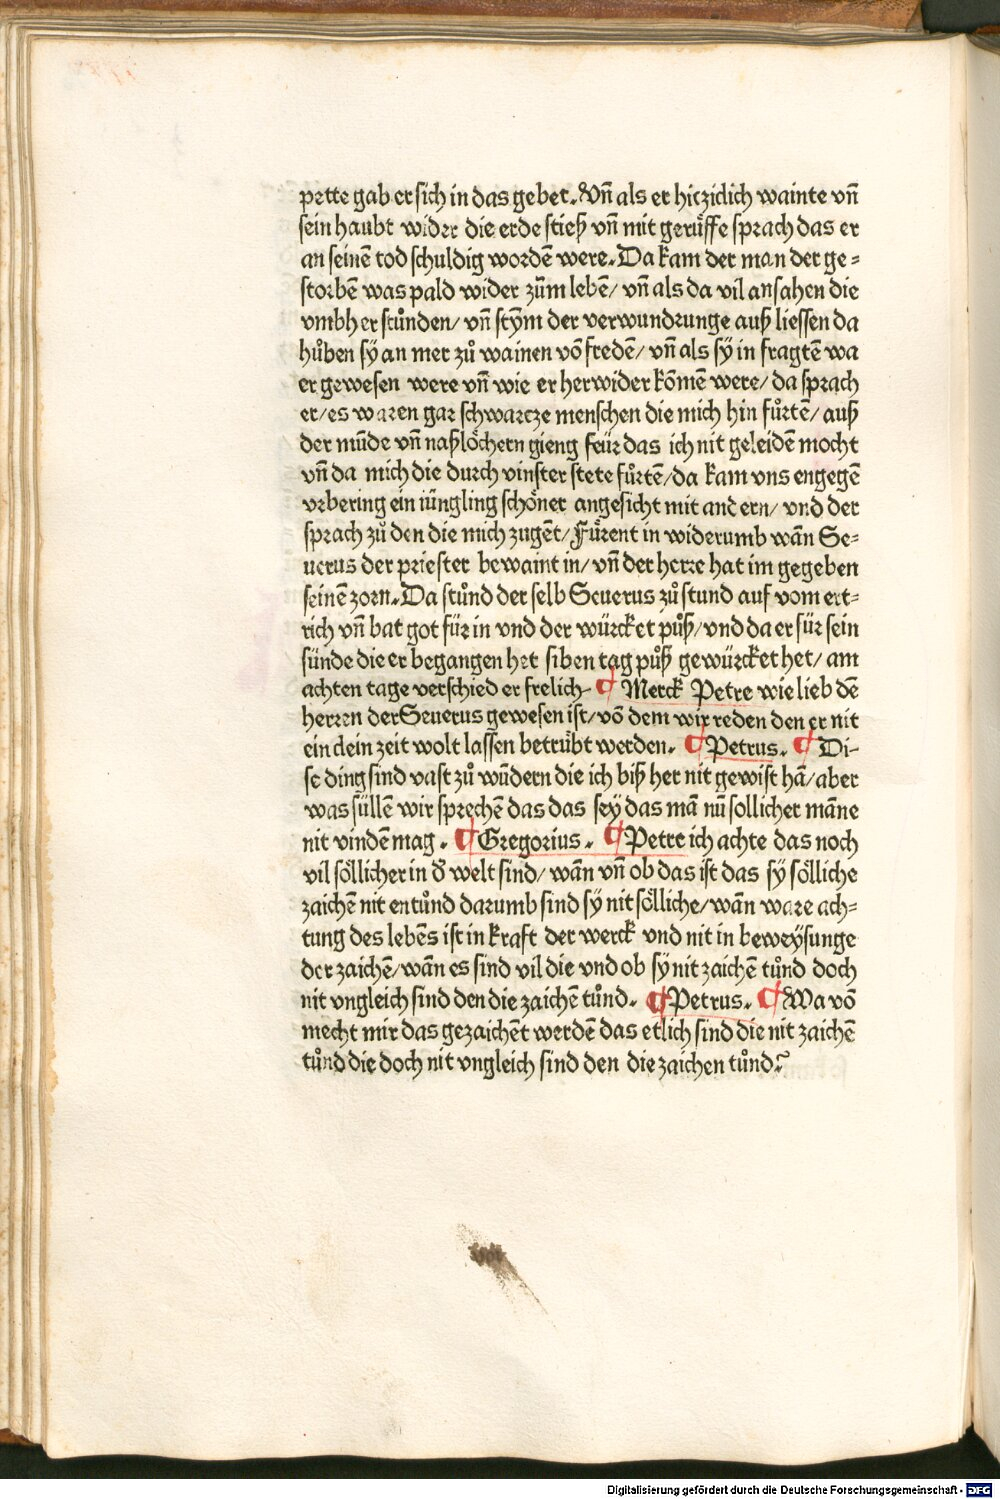 pette gab er sich in das gebet. Vñ als er hiczidich wainte vñ
sein haubt wider die erde stieß vñ mit gerůffe sprach das er
an seinē tod schuldig wordē were. Da kam der man der ge⸗
storbē was pald wider zům lebē/ vñ als da vil ansahen die
vmbher stůnden/ vñ stym̄ der verwundrunge auß liessen da
hůben sÿ an mer zů wainen vō fredē/ vñ als sÿ in fragtē wa
er gewesen were vñ wie er herwider kōmē were/ da sprach
er/ es waren gar schwarcze menschen die mich hin fůrtē/ auß
der mūde vñ naßlöchern gieng feür das ich nit geleidē mocht
vñ da mich die durch vinster stete fůrtē/ da kam vns engegē
vrbering ein iüngling schöner angesicht mit andern/ vnd der
sprach zů den die mich zugēt/ Fürent in widerumb wān Se⸗
uerus der priester bewaint in/ vñ der herre hat im gegeben
seinē zorn. Da stůnd der selb Seuerus zů stund auf vom ert⸗
rich vñ bat got für in vnd der würcket půß/ vnd da er für sein
sünde die er begangen het siben tag půß gewürcket het/ am
achten tage verschied er frelich. ¶ Merck Petre wie lieb dē
herren der Seuerus gewesen ist/ vō dem wir reden den er nit
ein clein zeit wolt lassen betrübt werden. ¶ Petrus. ¶ Di⸗
se ding sind vast zů wūdern die ich biß her nit gewist hā/ aber
was süllē wir sprechē das das sey das mā nū sollicher māne
nit vindē mag. ¶ Gregorius. ¶ Petre ich achte das noch
vil söllicher in d̕ welt sind/ wān vñ ob das ist das sy sölliche
zaichē nit entůnd darumb sind sy nit sölliche/ wān ware ach⸗
tung des lebēs ist in kraft der werck vnd nit in beweÿsunge
der zaichē/ wān es sind vil die vnd ob sy nit zaichē tůnd doch
nit vngleich sind den die zaichē tůnd. ¶ Petrus. ¶ Wa vō
mecht mir das gezaichēt werdē das etlich sind die nit zaichē
tůnd die doch nit vngleich sind den die zaichen tůnd?
Digitalisierung gefördert durch die Deutsche Forschungsgemeinschaft - DFG